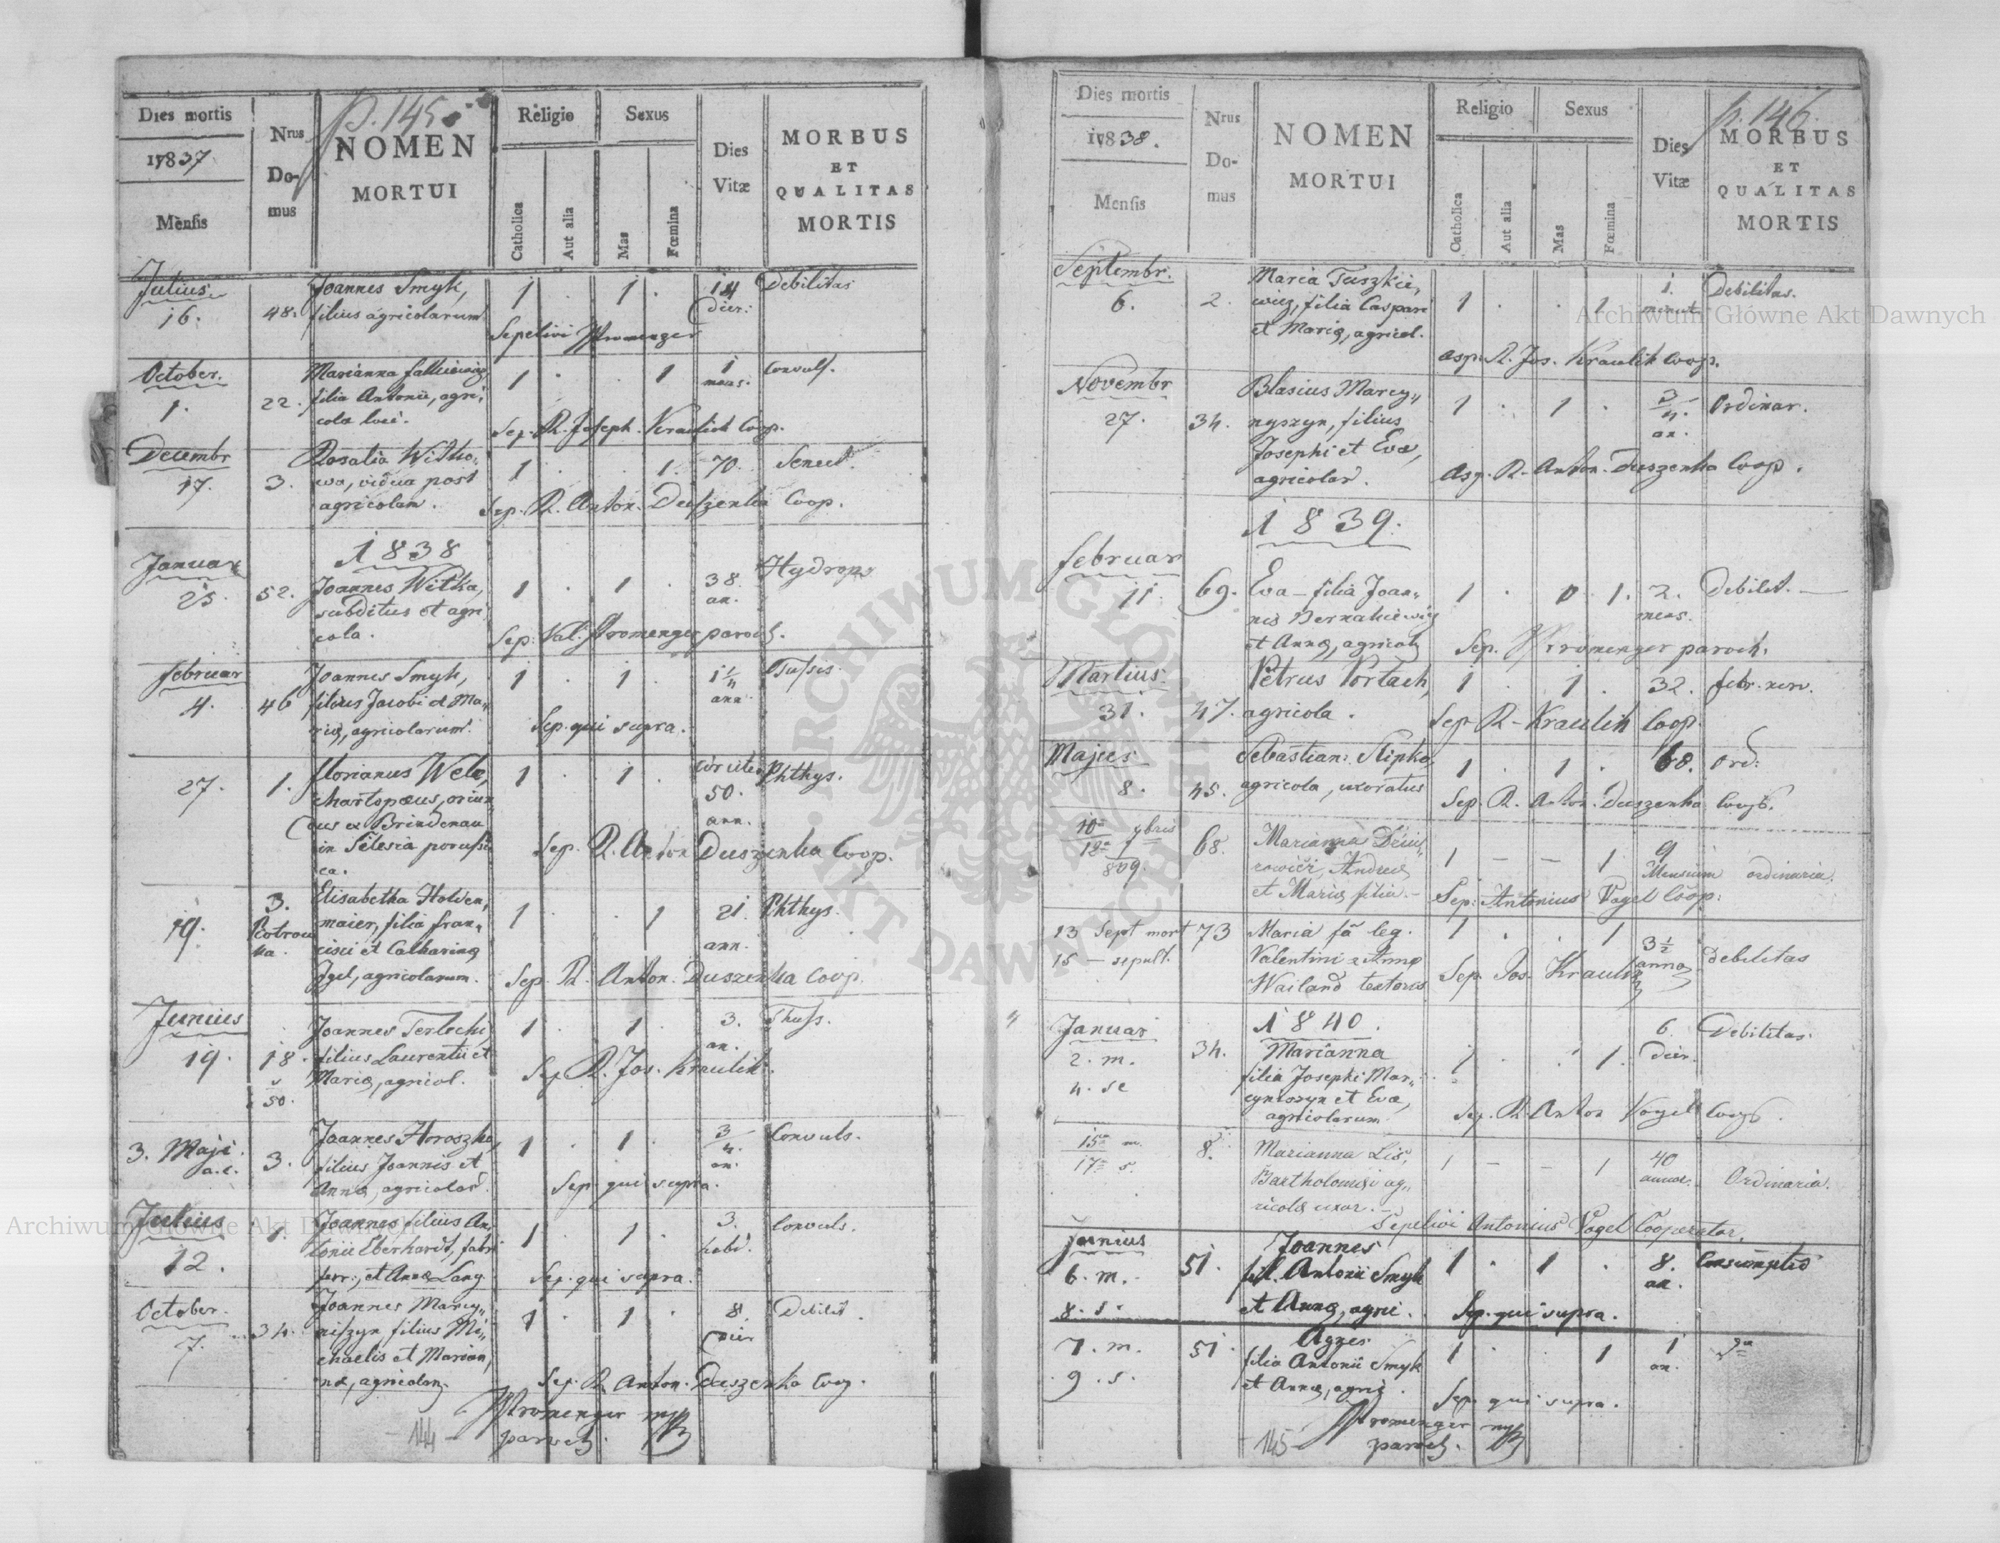 p. 145.
Dies mortis
17837
Mensis
Nrus
Do-
mus
NOMEN
MORTUI
Religio
Sexus
Catholica
Aut alia
Mas
Fœmina
Dies
Vitæ
MORBUS
ET
QUALITAS
MORTIS
Julius
16.
48.
Joannes Smyk,
filius agricolarum
1 . 1 .
14
dier.
Debilitas
Sepelivi Promenger
October.
1.
22.
Marianna
filia Antonii, agri,
cola
1 . . 1
1
mens.
Convuls.
Sep. R. Joseph. Kraulich Coop.
Decembr
17.
3.
Rosalia Witko,
wa, vidua post
agricolam.
1 . . 1.
70.
Senect.
Sep. R. Anton. Duszenka Coop.
1838
Januar
25.
52.
Joannes Witka,
subditus et agri
cola.
1 . 1 .
38.
an.
Hydrops
Sep. Val. Promenger paroch.
Februar
4.
46
Joannes Smyk,
filius Jacobi et Ma-
riæ, agricolarum.
1 . 1 .
1 1/4
ann
Tussis.
Sep. qui supra.
27.
1.
Florianus Welz,
chartopæus, oriun
dus ex Brindenau
in Silesia porussi
ca.
1 . 1 .
circiter
50.
ann.
Phthys.
Sep. R. Anton Duszenka Coop.
19.
3.
Piotrow
ka.
Elisabetha Holden,
maier, filia fran-
cisci et Catharinæ
Igel, agricolarum.
1 . . 1
21
ann.
Phthys.
Sep. R. Anton. Duszenka Coop.
Junius
19.
18.
50.
Joannes Terlecki
filius Laurentii et
Mariæ, agricol.
1 . 1 .
3.
an.
Thuss.
Sep R. Jos. Kraulik.
3. Maji
a.c.
3.
Joannes Horoszko,
filius Joannis et
Annæ, agricolar.
1 . 1 .
3
4.
an.
Convuls.
Sep. qui supra.
Julius
12.
1.
Joannes filius An,
tonii Eberhardt, fabri
ferr., et Annæ Lang
1 . 1 .
3.
hebd.
Convuls.
Sep. qui supra.
October.
7.
34.
Joannes Marcy,,
niszyn, filius Mi,,
chaelis et Marian,
næ, agricolar.
1 . 1 .
8.
dier
Debilit.
Sep. R. Anton. Duszenka Coop.
Promenger mp
paroch.
- 144 -
p. 146.
Dies mortis
17838.
Mensis
Nrus
Do-
mus
NOMEN
MORTUI
Religio
Sexus
Catholica
Aut alia
Mas
Fœmina
Dies
Vitæ
MORBUS
ET
QUALITAS
MORTIS
Septembr.
6.
2.
Maria Tuszkie,
wicz, filia Caspari
et Mariæ, agricol.
1 . . 1
1.
minut.
Debilitas.
asp. R. Jos. Kraulik Coop.
Novembr
27.
34.
Blasius Marcy,,
nyszyn, filius
Josephi et Evæ,
agricolar.
1 . 1 .
3
4.
an.
Ordinar.
Asp. R. Anton. Duszenka Coop.
1839.
Februar
11.
69.
Eva - filia Joan-
nis Bernakiewicz
et Annæ, agricol.
1 . 0 . 1.
2.
mens.
Debilit. -
Sep. Promenger paroch.
Martius.
31.
47.
Petrus Portach,
agricola.
1 . 1 .
32.
febr. nerv.
Sep R - Kraulik Coop.
Majus
8.
45.
Sebastian: Slipko
agricola, uxoratus
1 . 1 .
68.
ord:
Sep. R. Anton. Duszenka Coop.
10a
12a
7bris
839.
68.
Marianna
Andreæ
et Mariæ filia. -
1 - - 1
9
Mensium
ordinaria.
Sep: Antonius Vogel Coop:
13 Sept mort
15 - sepult.
73
Maria fa leg.
Valentini & Annæ
Wailand textoris
1 . . 1
3 1/2
annor.
Debilitas
Sep. Jos. Kraulik
1840.
Januar
2. m.
4. se
34.
Marianna
filia Josephi Mar,,
cyniszyn et Evæ,
agricolarum
1 . . 1.
6.
dier.
Debilitas.
Sep. R. Anton Vogel Coop.
15a m.
17a s.
8.
Marianna Lis,
Bartholomæi ag,,
ricolæ uxor. -
1 - - 1
40
annor.
Ordinaria.
Sepelivi Antonius Vogel Cooperator.
Junius
6. m.
8. s.
51.
Joannes
fil. Antonii Smyk
et Annæ, agric.
1 . 1 .
8.
an.
Consumptio
Sep. qui supra.
7. m.
9. s.
51.
Agnes
filia Antonii Smyk
et Annæ, agric.
1 . . 1
1
an.
Sep. qui supra.
Promenger mp
paroch.
- 145 -
Archiwum Główne Akt Dawnych
Archiwum Główne Akt Dawnych
ARCHIWUM GŁÓWNE AKT DAWNYCH